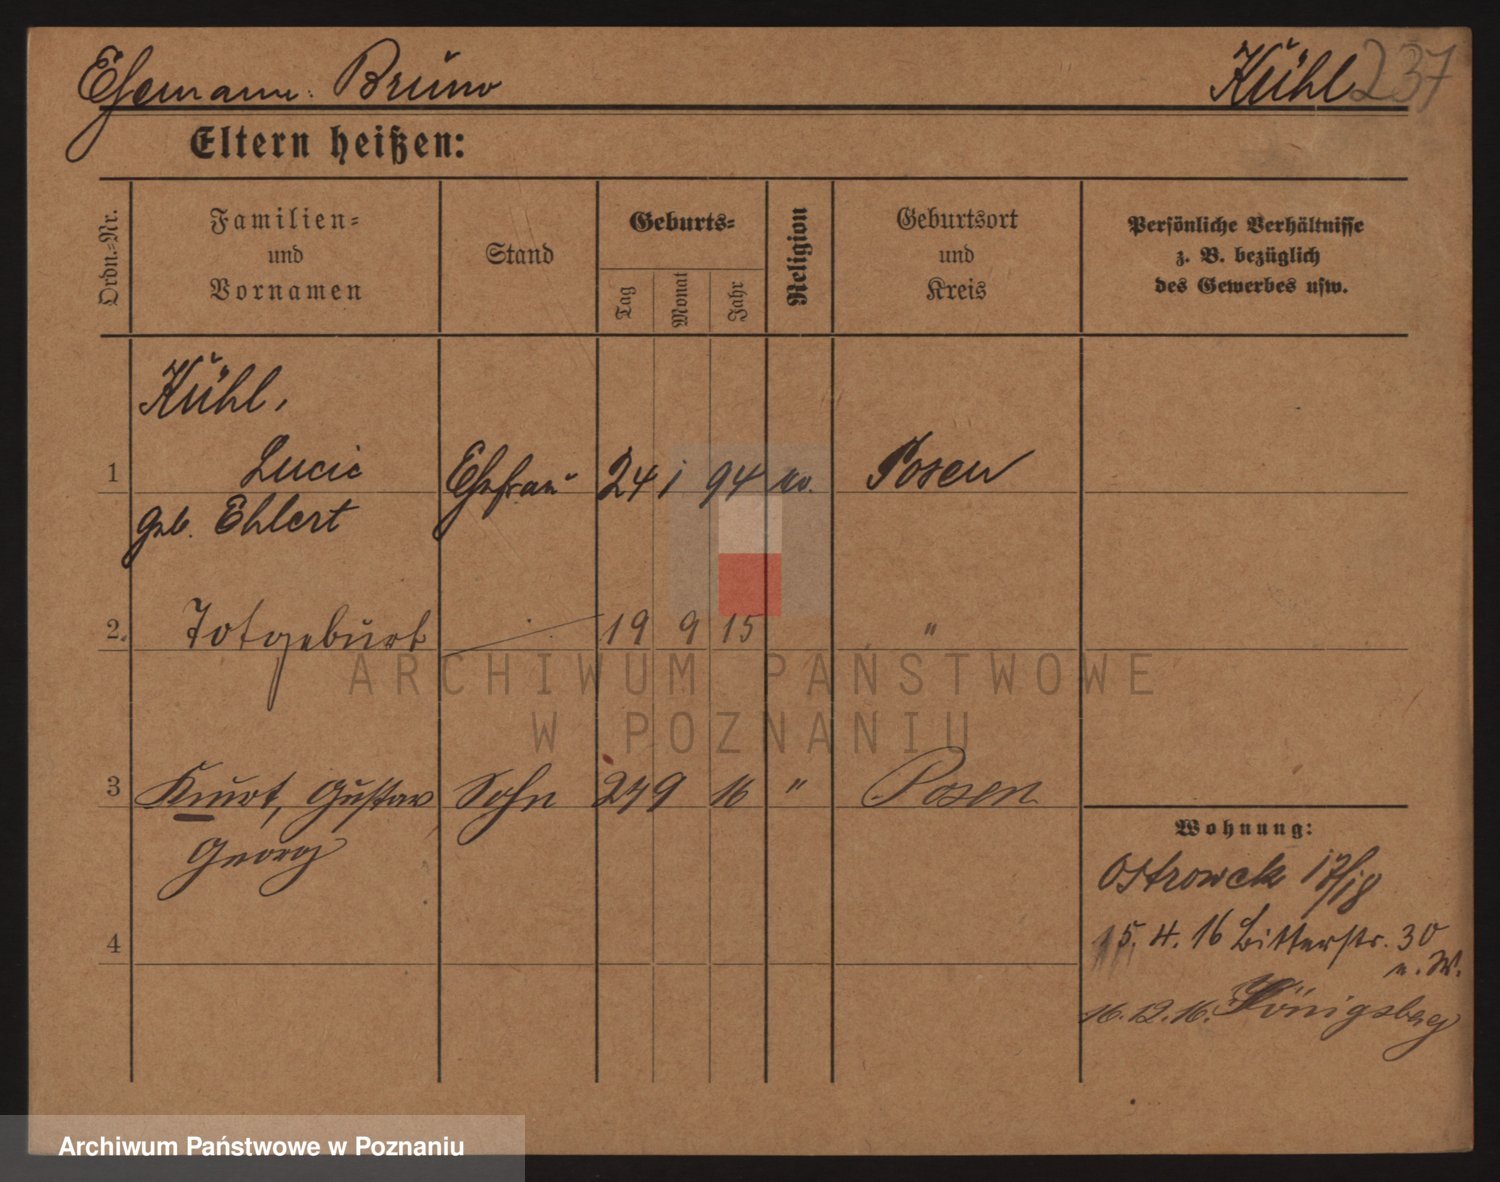 Ehemann: Bruno Kühl 237
Eltern heißen:
Ordn.-Nr.
Familien-
und
Vornamen
Stand
Geburts-
Tag
Monat
Jahr
Religion
Geburtsort
und
Kreis
Persönliche Verhältnisse
z. B. bezüglich
des Gewerbes usw.
Kühl,
1 Lucie Ehefrau 24 1 94 ev. Posen
geb. Ehlert
2. Totgeburt 19 9 15 "
3 Kurt, Gustav Sohn 27 9 16 " Posen
Georg
4
Wohnung:
Ostrowek 17/18
15. 4. 16 Bitterstr. 30
n. W.
16.12.16. Königsberg
ARCHIWUM PAŃSTWOWE
W POZNANIU
Archiwum Państwowe w Poznaniu